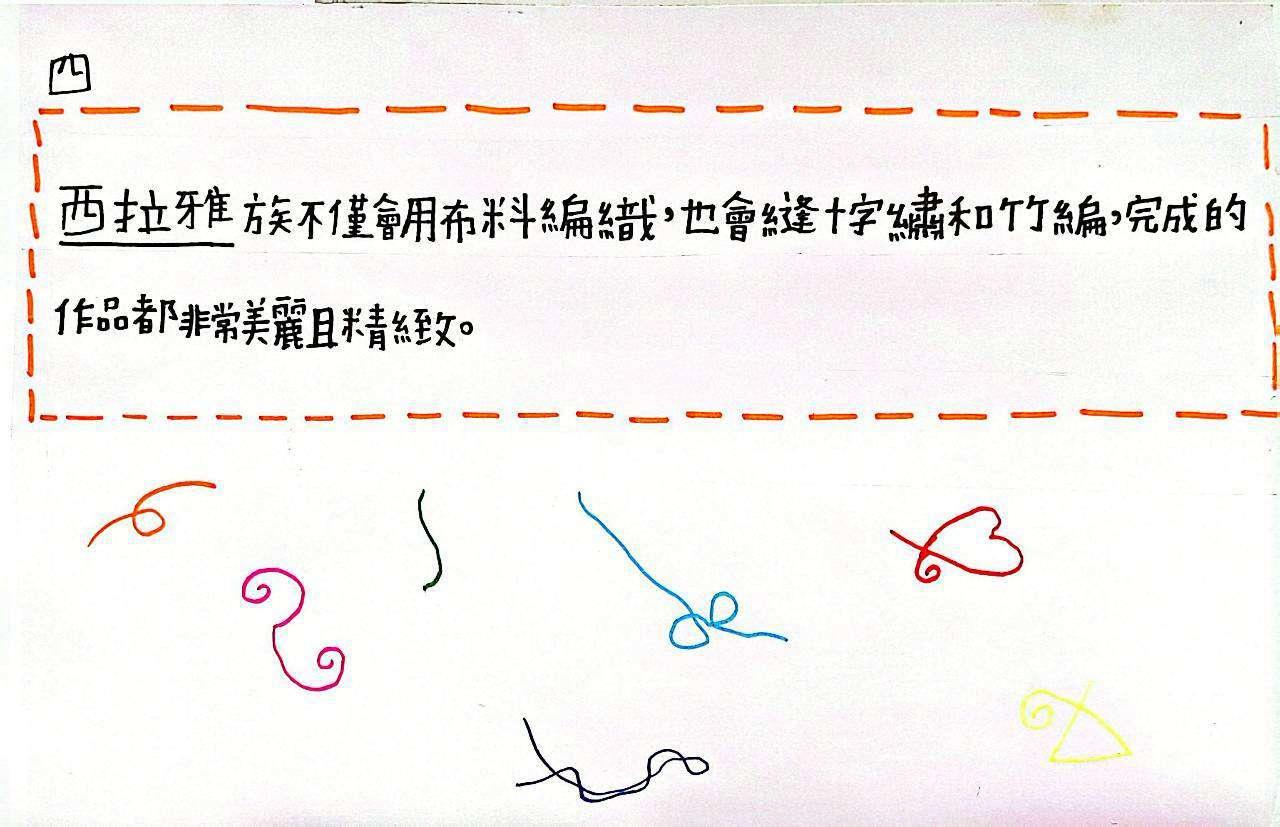 四
西拉雅族不僅會用布料編織，也會縫十字繡和竹編，完成的
作品都非常美麗且精緻。